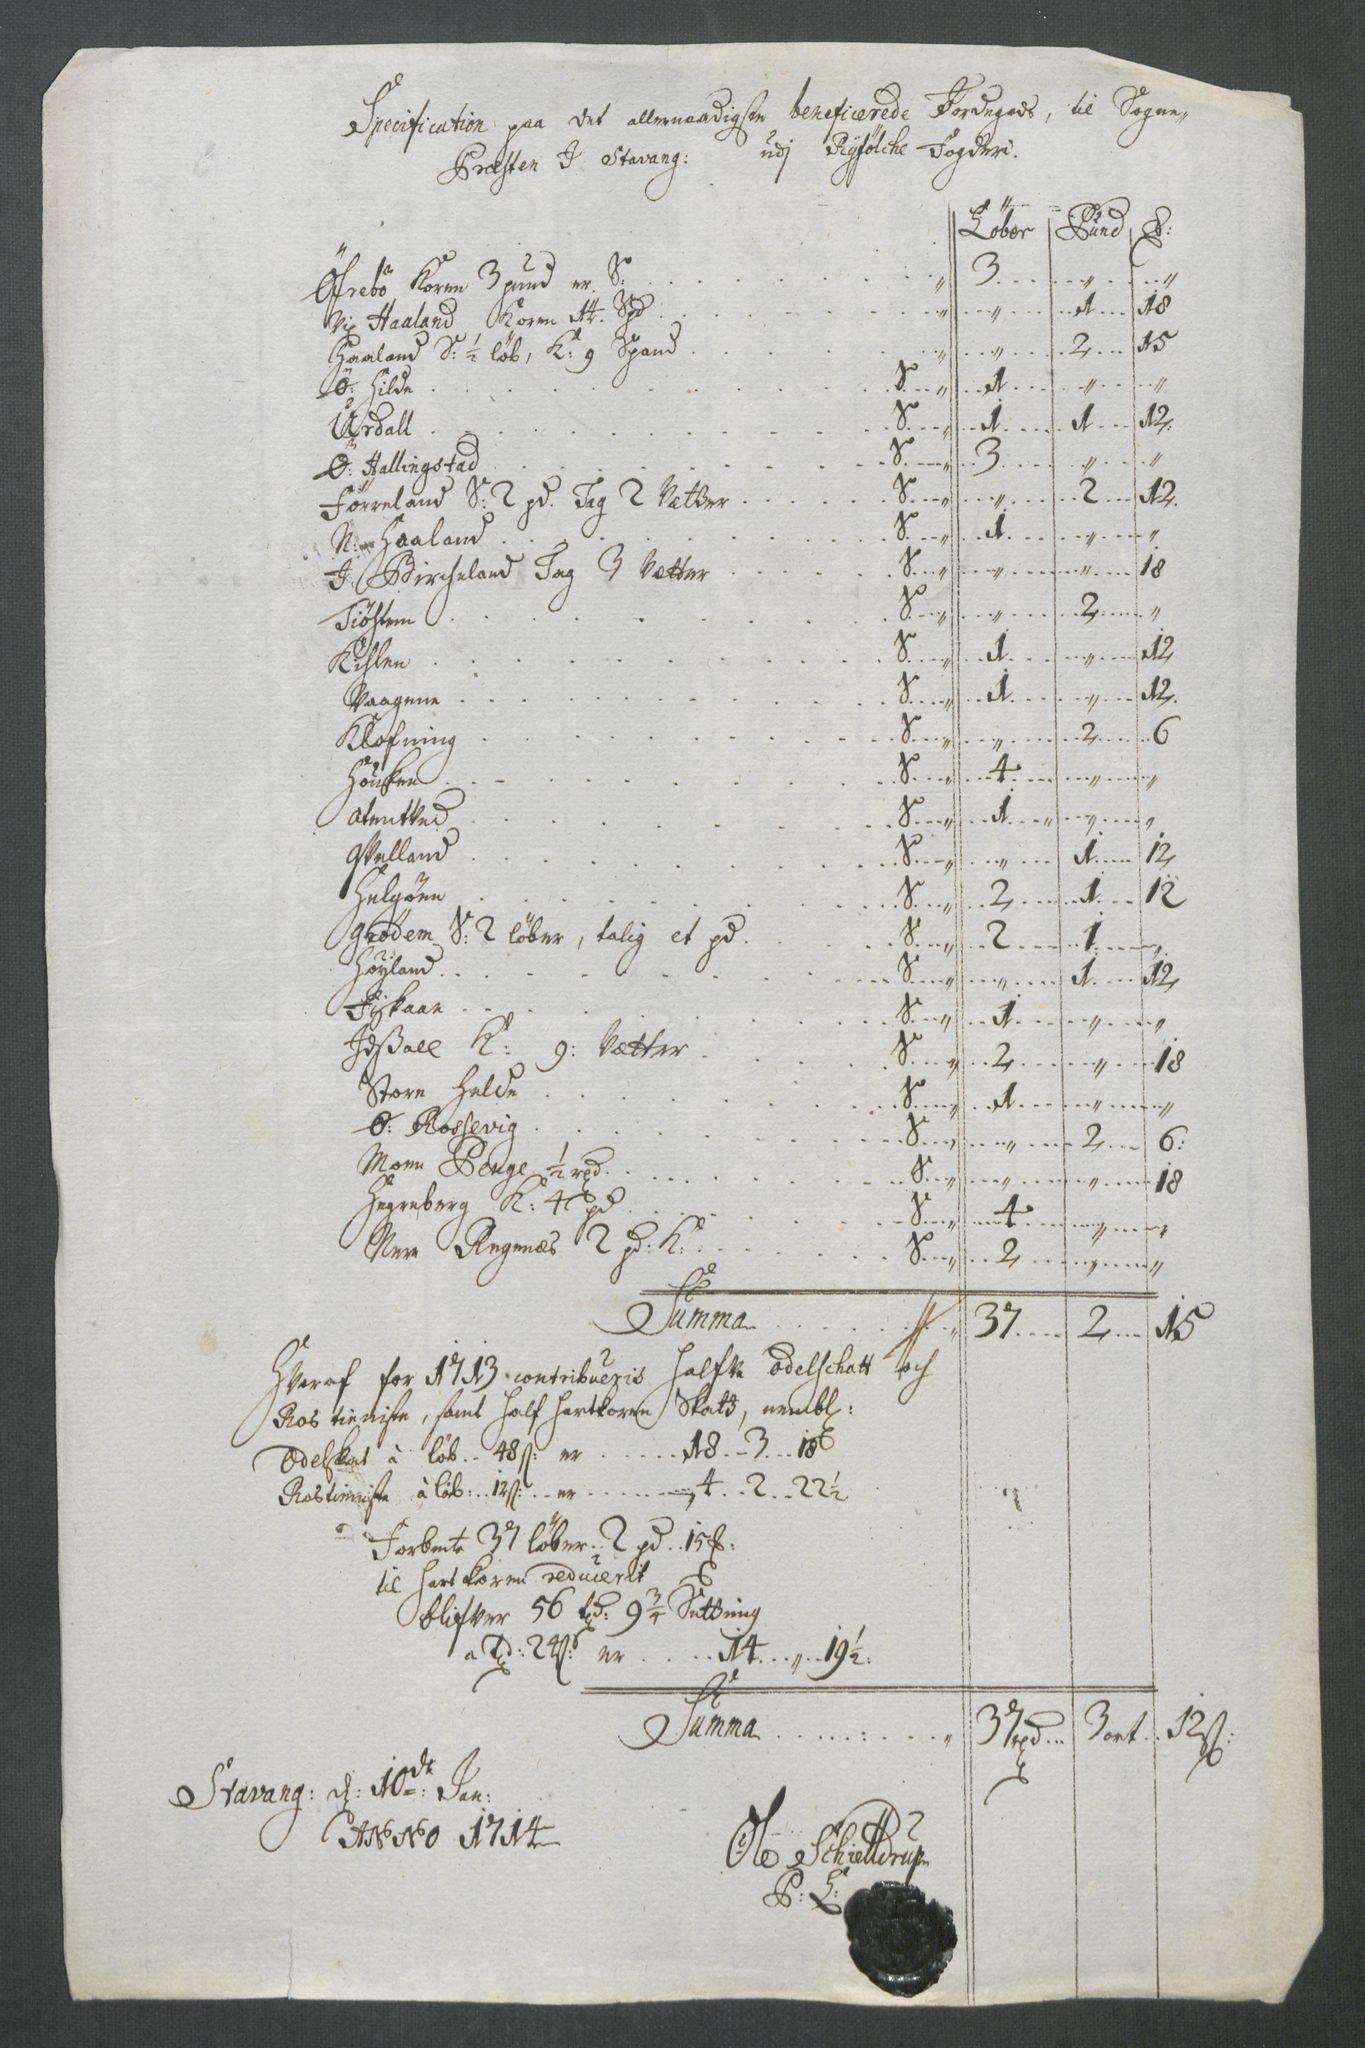 Specification paa det allernaadigste beneficerede Jordegods, til Sogne„
Præsten I Stavang: udj Ryfölche Fogderi.
Löber Pund ℔:
Öfrebö Korn 3 pund er S: „ 3 „ „
Haaland Korn At. Spd „ „ 1 18
Haaland S: ½ löb, K: 9 Spand „ „ 2 15
Ö: Hilde S „ 1 „ „
Urdall S „ 1 1 12
Ö: Hallingstad S „ 3 „ „
Förreland S: 2 pd. Tag 2 Vetter S „ „ 2 12.
N: Haaland S „ 1 „ „
I. Bircheland Tag 3 Vetter S „ „ „ 18
Tiösten S „ „ 2 „
Kislen S „ 1 „ 12
Vaagene S „ 1 „ 12.
Klofning S „ „ 2 6
S „ 4 „ „
S „ 1 „ „
Qvelland S „ „ 1 12
Helgöen S „ 2 1 12
Grödem S: 2 löber, talig et pd. S „ 2 1 „
Höyland S „ „ 1 12
Fiskaan S „ 1 „ „
Idsall K: 9: Vetter S „ 2 „ 18
Store Helde S „ 1 „ „
Ö: Rossevig S „ „ 2 6:
Moen Penge ½ rpd. S „ „ „ 18
Hegreberg K: 4 pd S „ 4 „ „
Nere Regenes 2 pd: K: S „ 2 „ „
Summa „ 37 2 15
Hveraf for 1713 contribueris halfve odelschatt och
Rostieniste, samt half hartkorn Skatt, nembl:
Odelskat à löb 48 s: er 18 3 18
Rostieniste à löb: 12 s: er 4 2 22½
Forbente 37 löber 2 pd 15 ℔:
til hartkorn reducerit
blifver 56 td: 9¾ Setting
a Td: 24 s: er 14 „ 19½:
Summa „ 37 rpd 3 ort 12 s:
Stavang: d: 10de: Jan:
ANNO 1714
Ole Schielldrup
P: L: